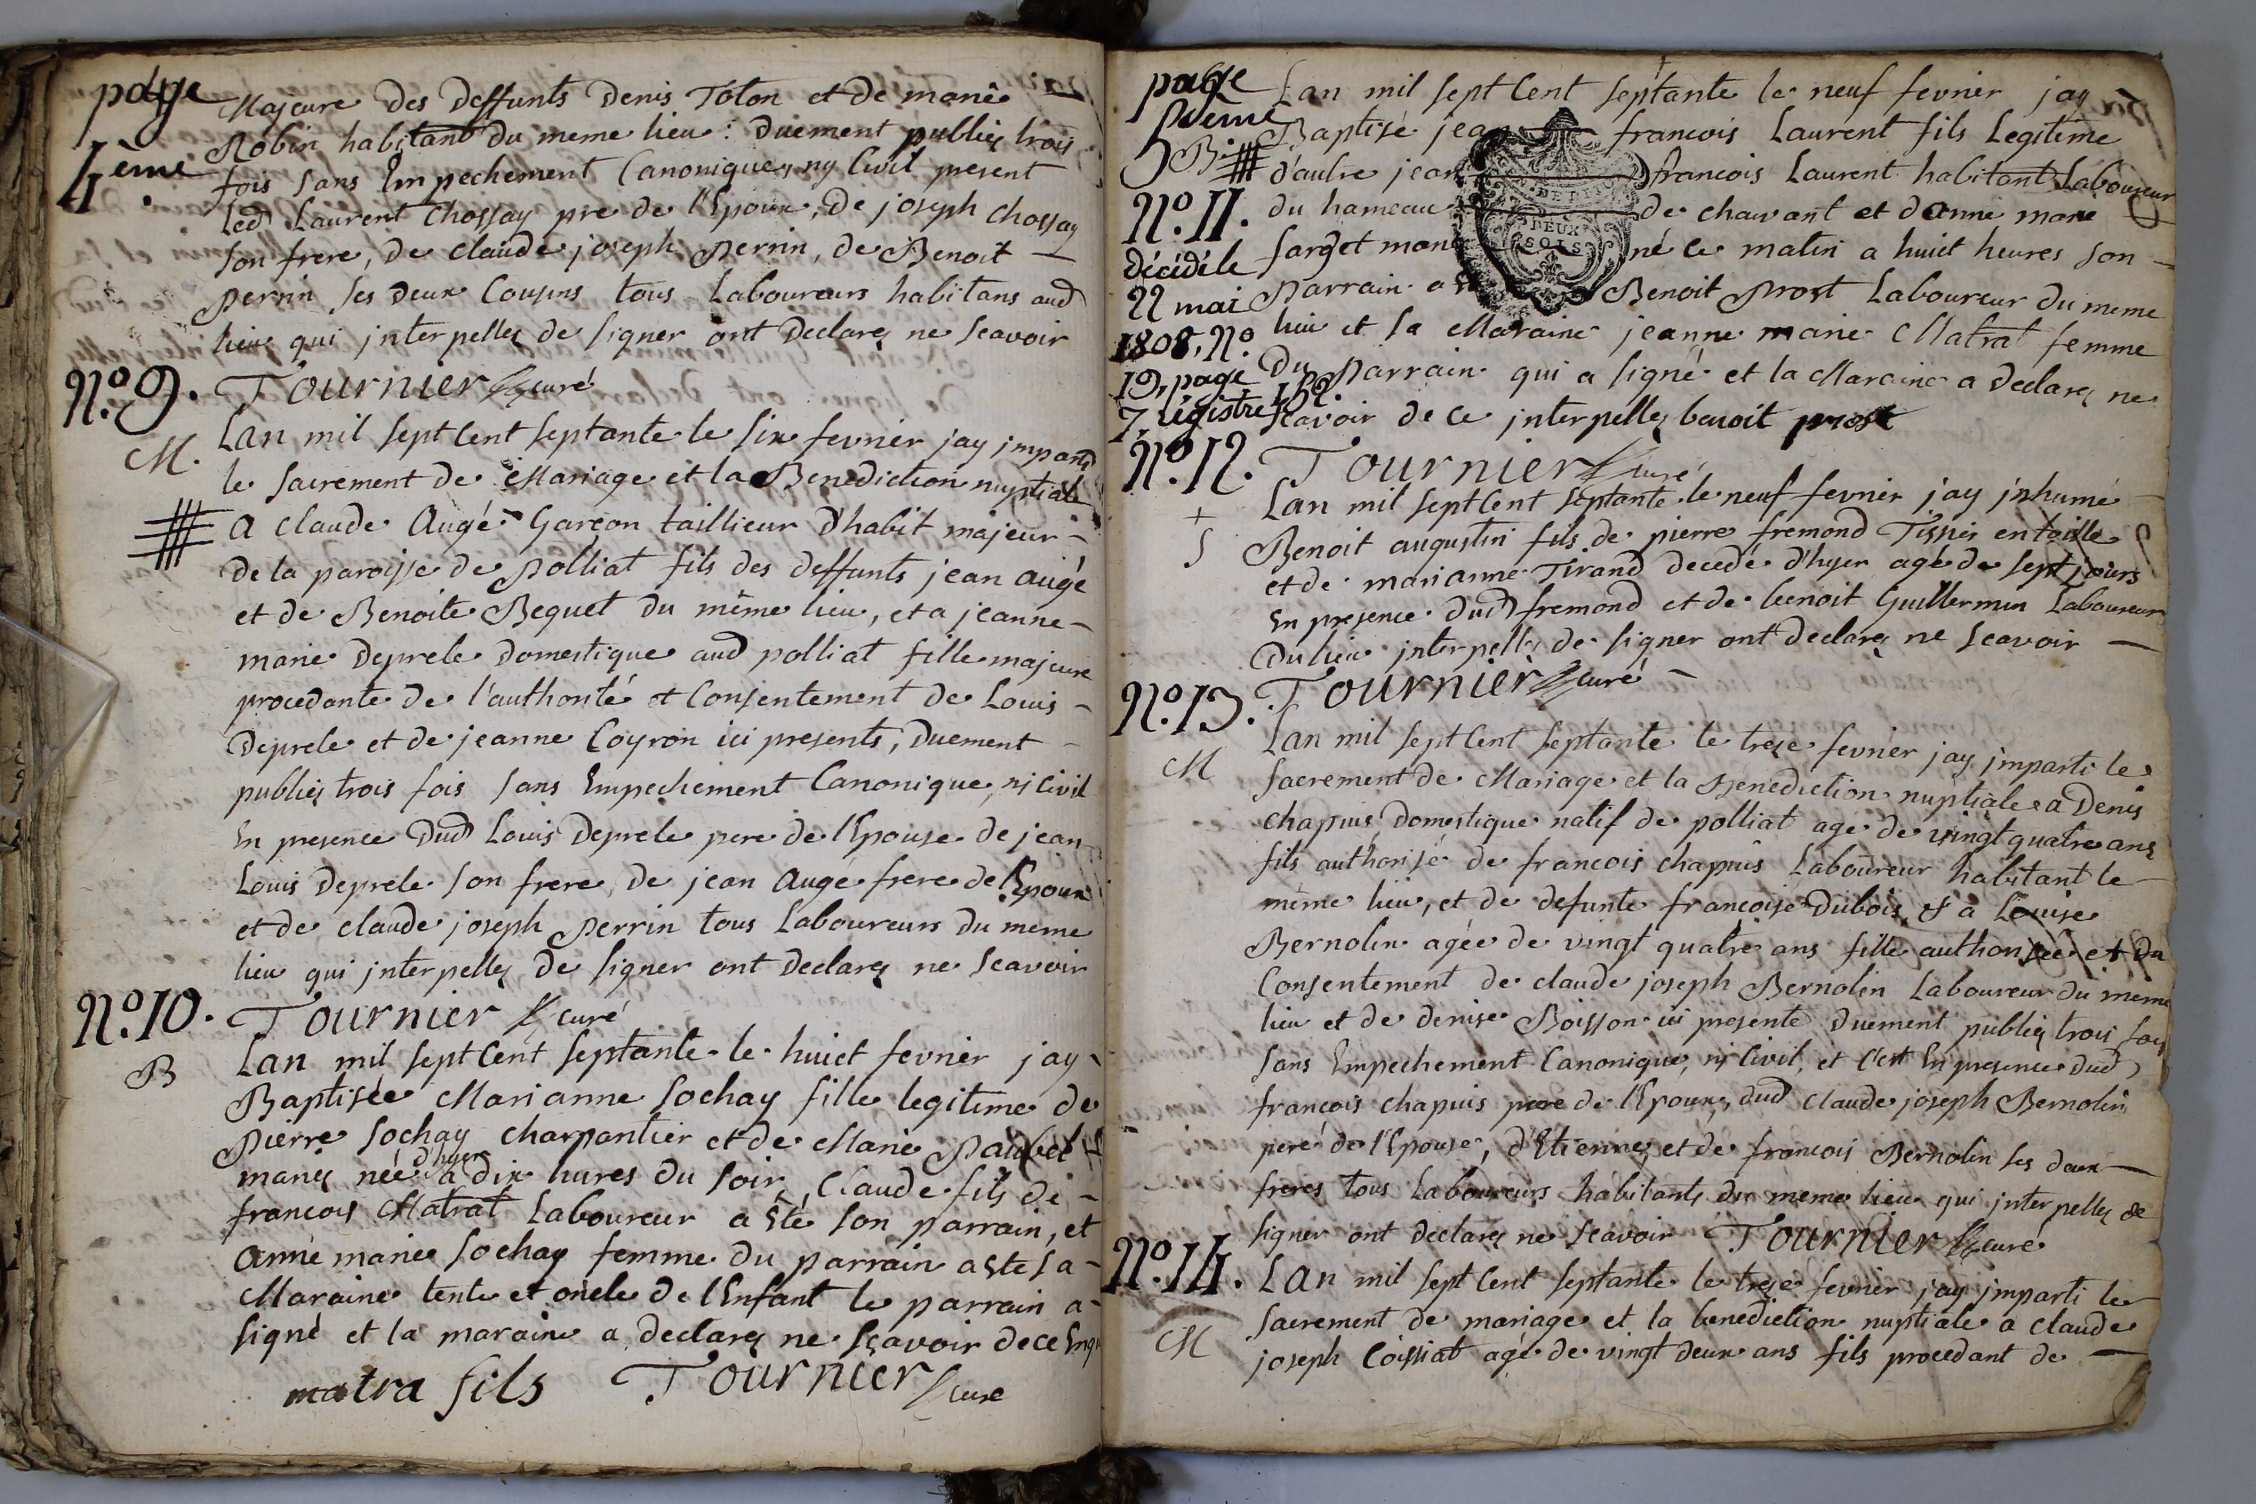 page
4ème.
Majeure des deffunts Denis Tolon et de marie
Robin habitant du meme lieu : duement publiés trois
fois sans Empechement Canonique, ny Civil present
led Laurent Chossay pre de l'Epoux, de joseph chossay
son frere, de claude joseph Perrin, de Benoit
perrin ses deux Cousins tous Laboureurs habitans aud
lieu qui jnterpellez de signer ont declarez ne scavoir
Tournier curé
N.º 9.
M.
Lan mil sept Cent septante le six fevrier jay jmparti
le sacrement de Mariage et la Benediction nuptiale
a claude Augé Garcon taillieur d'habit majeur
de la paroisse de Polliat fils des deffunts jean augé
et de Benoite Bequet du même lieu, et a jeanne
marie Deprele domestique aud polliat fille majeure
procedante de l'authorité et Consentement de Louis
Deprele et de jeanne Coyron ici presents, duement
publiez trois fois sans Empechement Canonique, nj Civil
En presence dud Louis Deprele pere de l'Epouse de jean
Louis Deprele son frere, de jean Augé frere de l'Epoux
et de claude joseph Perrin tous Laboureurs du même
lieu qui jnterpellez de signer ont declarez ne scavoir
Tournier curé
N.º 10.
B
Lan mil sept Cent septante le huict fevrier jay
Baptisée Marianne Sochay fille legitime de
pierre Sochay charpantier et de Marie
mariez née d'hyer a dix hures du soir, Claude fils de
francois Matrat Laboureur a Eté son parrain, et
anne marie Sochay femme du parrain a Eté sa
Maraine tente et oncle de l'Enfant le parrain a
signé et la maraine a declarez ne sçavoir de ce Enq
matra fils Tournier curé
page
5 ème
B.
N.º 11.
décédé le
22 mai
1808, N.º
19, page
7, régistre 152.
Lan mil sept Cent septante le neuf fevrier jay
Baptisé jean francois Laurent fils Legitime
d'autre jean francois Laurent habitant Laboureur
du hameau de chavant et d'anne marie
farget né ce matin a huit heures son
parrain a Benoit Prost Laboureur du meme
lieu et sa Maraine jeanne marie Matrat femme
du Parrain qui a signé et la Maraine a declarez ne
scavoir de ce jnterpellez benoit prost
DEUX
SOLS
Tournier curé
N.º 12.
+
S
Lan mil sept Cent septante le neuf fevrier jay jnhumé
Benoit augustin fils de pierre fremond Tissier en toille
et de marianne Tirand decedé d'hyer agé de sept jours
En presence dud fremond et de benoit Guillermin Laboureur
Du lieu jnterpellez de signer ont declarez ne scavoir
Tournier curé
N.º 13.
M
Lan mil sept Cent septante le treze fevrier jay jmparti le
sacrement de Mariage et la Benediction nuptiale a Denis
chapuis domestique natif de polliat age de vingt quatre ans
fils authorisé de francois chapuis Laboureur habitant le
même lieu, et de defunte francoise Dubois, & a Louise
Bernolin agée de vingt quatre ans fille authorisée et du
Consentement de claude joseph Bernolin Laboureur du même
lieu et de denise Boisson ici presente duement publiez trois fois
sans Empechement Canonique, nj Civil, et c'est En presence dud
francois chapuis pere de l'Epoux, dud claude joseph Bernolin
pere de l'Epouse, d'Etienne, et de francois Bernolin ses deux
freres tous Laboureurs habitants du meme lieu qui jnterpellez de
signer ont declarez ne scavoir Tournier curé
N.º 14.
M
Lan mil sept Cent septante le treze fevrier jay jmparti le
sacrement de mariage et la benediction nuptiale a claude
joseph Coissiat agé de vingt deux ans fils procedant de